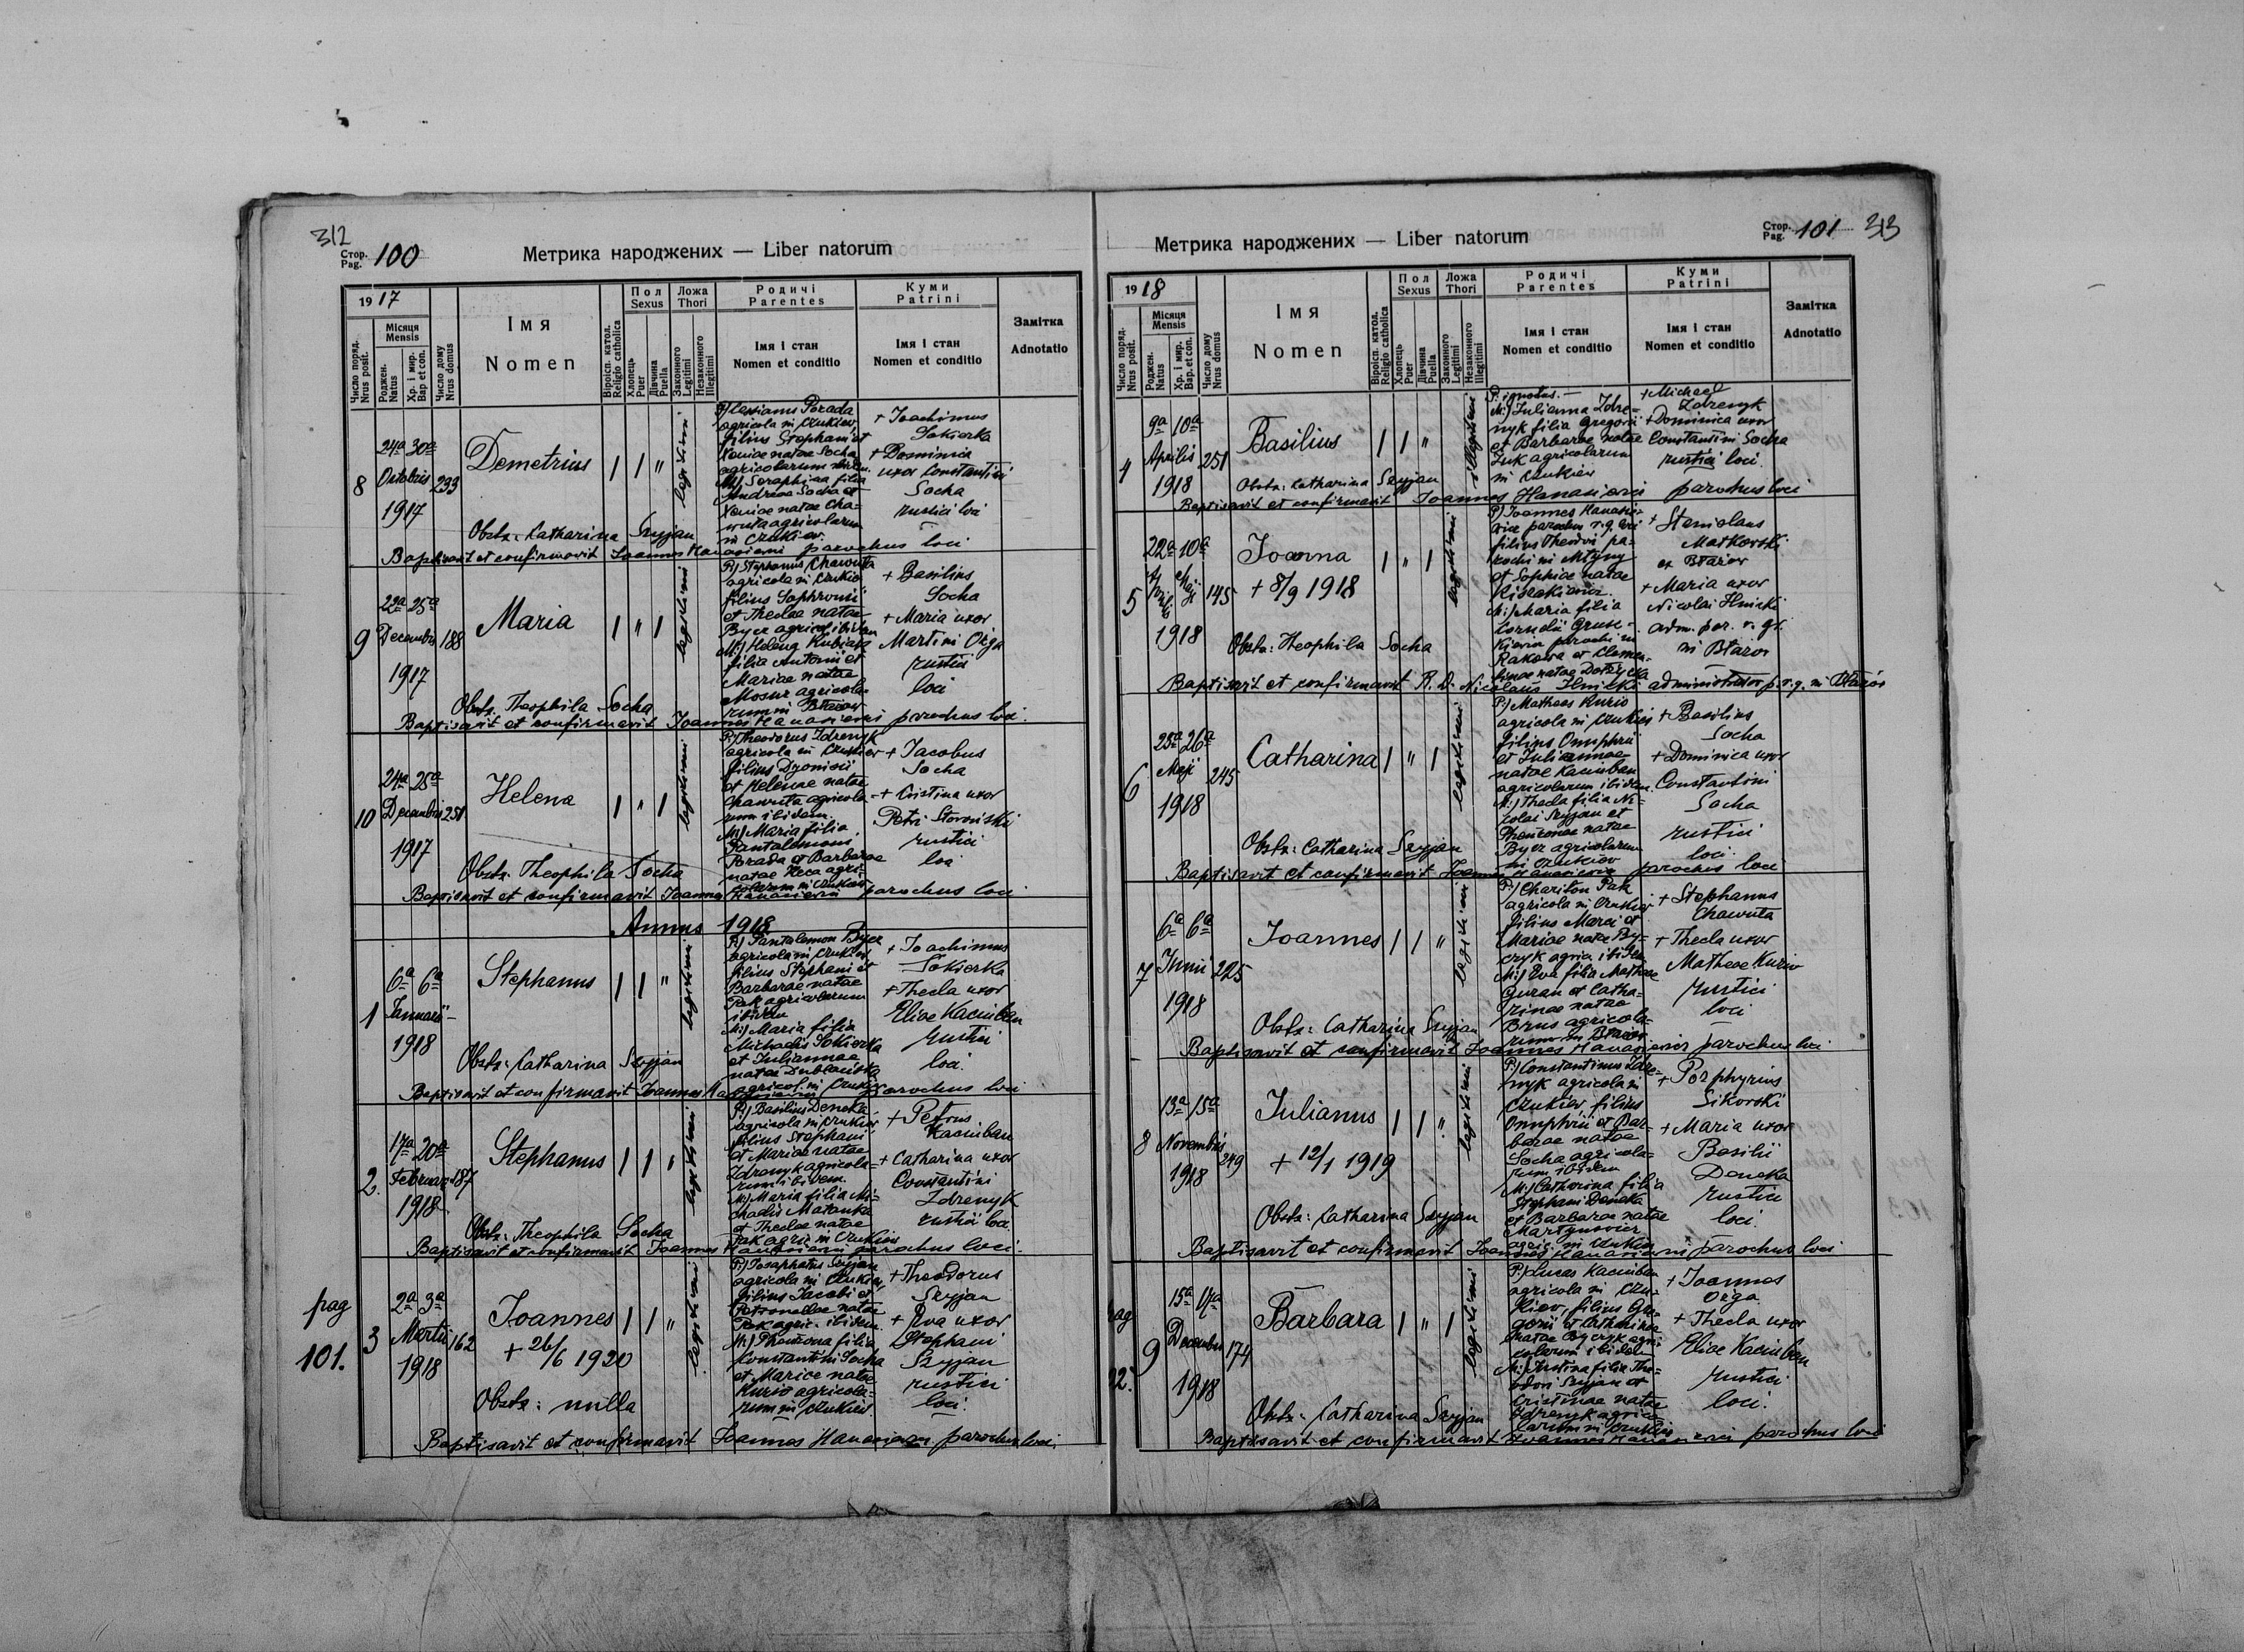 312
Стор.
Pag. 100
Метрика народжених — Liber natorum
1917
Число поряд.
Nrus posit.
Місяця
Mensis
Роджен.
Natus
Хр. і мир.
Bap et con.
Число дому
Nrus domus
Імя
Nomen
Віроісп. катол.
Religio catholica
Пол
Sexus
Хлопець
Puer
Дівчина
Puella
Ложа
Thori
Законного
Legitimi
Незаконного
Illegitimi
Родичі
Parentes
Імя і стан
Nomen et conditio
Куми
Patrini
Імя і стан
Nomen et conditio
Замітка
Adnotatio
8
24a 30a
Octobris
1917
233
Demetrius
1 1 "
legitimi
Porada
agricola in Czukiew
filius Stephani et
Xeniae natae Socha
agricolarum
M:) Seraphina filia
Andreae Socha et
Xeniae natae Cha=
wuta agricolarum
in Czukiew
+ Joachimus
Sokierka
+ Dominica
uxor Constantini
Socha
rustici loci
Obstx: Catharina Szyjan
Baptisavit et confirmavit Joannes Hanasiewicz parochus loci
9
22a 25a
Decembris
1917
188
Maria
1 " 1
legitimi
P:) Stephanus Chawuta
agricola in Czukiew
filius Sophronii
et Theclae natae
Bycz agricol. ibidem
M:) Helena Kubicka
filia Antonii et
Mariae natae
Mosur agricola=
rum in Błażow
+ Basilius
Socha
+ Maria uxor
Martini Ożga
rustici
loci
Obstx. Theophila Socha
Baptisavit et confirmavit Joannes Hanasiewicz parochus loci.
10
24a 25a
Decembris
1917
251
Helena
1 " 1
legitimi
P:) Theodorus Zdrenyk
agricola in Czukiew
filius Dyonisii
et Helenae natae
Chawuta agricola=
rum ibidem.
M:) Maria filia
Pantalemonis
Porada et Barbarae
natae Keca agri=
colarum in Czukiew
+ Jacobus
Socha
+ Cristina uxor
Petri Storoński
rustici
loci
Obstx. Theophila Socha
Baptisavit et confirmavit Joannes Hanasiewicz parochus loci
Annus 1918.
1
6a 6a
Januarii
1918
Stephanus
1 1 "
legitimi
P:) Pantalemon Bycz
agricola in Czukiew
filius Stephani et
Barbarae natae
Pak agricolarum
ibidem
M:) Maria filia
Michaelis Sokierka
et Juliannae
natae Dublanska
agricol. in Czukiew
+ Joachimus
Sokierka
+ Thecla uxor
Eliae Kaciuban
rustici
loci.
Obstx: Catharina Szyjan
Baptisavit et confirmavit Joannes Hanasiewicz parochus loci
2.
17a 20a
Februarii
1918
187
Stephanus
1 1 "
legitimi
P:) Basilius Deneka
agricola in Czukiew
filius Stephani
et Mariae natae
Zdrenyk agricola=
rum ibidem.
M:) Maria filia Mi=
chaelis Matanka
et Theclae natae
Pak agric. in Czukiew
+ Petrus
Kaciuban
+ Catharina uxor
Constantini
Zdrenyk
rustici loci
Obstx: Theophila Socha
Baptisavit et confirmavit Joannes Hanasiewicz parochus loci.
pag
101.
3
2a 3a
Martii
1918
162
Joannes
+ 26/6 1920
1 1 "
legitimi
P:) Josaphatus Szyjan
agricola in Czukiew,
filius Jacobi et
Petronellae natae
Pak agric. ibidem.
M:) Phemrona filia
Constantini Socha
et Mariae natae
Kurio agricola=
rum in Czukiew.
+ Theodorus
Szyjan
+ Eva uxor
Stephani
Szyjan
rustici
loci.
Obstx: nulla
Baptisavit et confirmavit Joannes Hanasiewicz parochus loci.
Стор.
Pag. 101 313
Метрика народжених — Liber natorum
1918
Число поряд.
Nrus posit.
Місяця
Mensis
Роджен.
Natus
Хр. і мир.
Bap. et con.
Число дому
Nrus domus
Імя
Nomen
Віроісп. катол.
Religio catholica
Пол
Sexus
Хлопець
Puer
Дівчина
Puella
Ложа
Thori
Законного
Legitimi
Незаконного
Illegitimi
Родичі
Parentes
Імя і стан
Nomen et conditio
Куми
Patrini
Імя і стан
Nomen et conditio
Замітка
Adnotatio
4
9a 10a
Aprilis
1918
251
Basilius
1 1 "
illegitimi
P. ignotus.—
M:) Julianna Zdre=
nyk filia Gregorii
et Barbarae natae
Żuk agricolarum
in Czukiew
+ Michael
Zdrenyk
+ Dominica uxor
Constantini Socha
rustici loci.
Obstx: Catharina Szyjan
Baptisavit et confirmavit Joannes Hanasiewicz parochus loci
5
22a 10a
Aprilis Maji
1918
145
Joanna
+ 8/9 1918
1 " 1
legitimi
P:) Joannes Hanasie=
wicz parochus r. g. loci
filius Theodori pa=
rochi in Mtyny
et Sophiae natae
Kiszakiewicz.
M:) Maria filia
Cornelii Grusz=
kiewicz parochi in
Rakowa et Clemen=
tinae natae Dotżycka
+ Stanislaus
Matkowski
ex Błażow
+ Maria uxor
Nicolai Ilnicki
adm. par. r. gr.
in Błażow
Obstx: Theophila Socha
Baptisavit et confirmavit R. D. Nicolaus Ilnicki administrator p. r. g. in Błażów
6
23a 26a
Maji
1918
245
Catharina
1 " 1
legitimi
P:) Matheus Kurio
agricola in Czukiew
filius Onuphrii
et Juliannae
natae Kaciuban
agricolarum ibidem.
M:) Thecla filia Ni=
colai Szyjan et
Phemronae natae
Bycz agricolarum
in Czukiew
+ Basilius
Socha
+ Dominica uxor
Constantini
Socha
rustici
loci.
Obstx: Catharina Szyjan
Baptisavit et confirmavit Joannes Hanasiewicz parochus loci
7
6a 6a
Junii
1918
225
Joannes
1 1 "
legitimi
P:) Chariton Pak
agricola in Czukiew
filius Marci et
Mariae natae By=
czyk agric. ibidem
M:) Eva filia Mathaei
Guran et Catha=
rinae natae
Brus agricola=
rum in Błażow
+ Stephanus
Chawuta
+ Thecla uxor
Matheae Kurio
rustici
loci
Obstx: Catharina Szyjan
Baptisavit et confirmavit Joannes Hanasiewicz parochus loci
8
13a 15a
Novembris
1918
249
Julianus
+ 12/1 1919
1 1 "
legitimi
P:) Constantinus Zdre=
nyk agricola in
Czukiew, filius
Onuphrii et Bar=
barae natae
Socha agricola=
rum ibidem
M:) Catharina filia
Stephani Deneka
et Barbarae natae
Martynowicz
agric. in Czukiew
+ Porphyrius
Sikorski
+ Maria uxor
Basilii
Deneka
rustici
loci.
Obstx: Catharina Szyjan
Baptisavit et confirmavit Joannes Hanasiewicz parochus loci
9
15a 17a
Decembris
1918
174
Barbara
1 " 1
legitimi
P:) Lucas Kaciuban
agricola in Czu=
kiew, filius Gre=
gorii et Catharinae
natae Byczyk agri=
colarum ibidem
M:) Justina filia The=
odori Szyjan et
Cristinae natae
Zdrenyk agrico=
larum in Czukiew
+ Joannes
Ożga
+ Thecla uxor
Eliae Kaciuban
rustici
loci.
Obstx: Catharina Szyjan
Baptisavit et confirmavit Joannes Hanasiewicz parochus loci